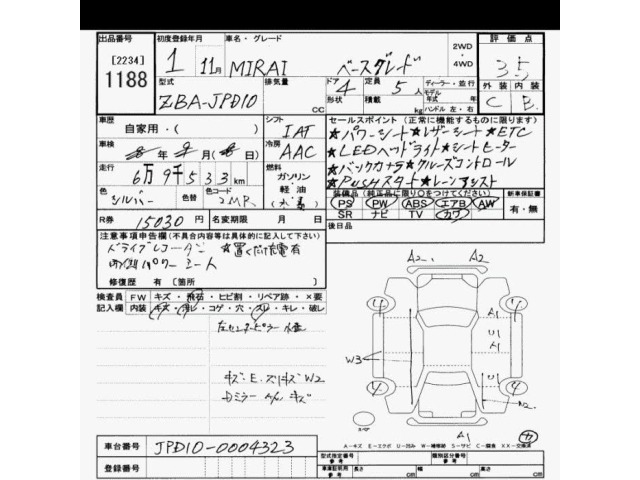 出品番号 初度登録年月 車名・グレード 2WD ・ 4WD 評価点
[2234]
1188
1 11月 MIRAI ベースグレード 3.5
型式 排気量 CC ドア 4 定員 5 人 ディーラー・並行 外装 内装
ZBA-JPD10 形状 積載 kg モデル年式 年式 ハンドル 左・右 C B
車歴 自家用・( ) シフト IAT セールスポイント (正常に機能するものに限ります)
★パワーシート★レザーシート★ETC
車検 年 月( 日) 冷房 AAC ★LEDヘッドライト★シートヒーター
★バックカメラ★クルーズコントロール
走行 6万9千533km 燃料 ガソリン 軽油 ★PUSHスタート★レーンアシスト
色 シルバー 色替 色コード
装備品 (純正品に限り○をつけてください) 新車保証書
PS PW ABS エアB AW 有・無
SR ナビ TV カワ
R券 15030円 名変期限 月 日 後日品
注意事項申告欄 (不具合内容等は具体的に記入して下さい)
ドライブレコーダー ★置くだけ充電有
修復歴 有 [箇所 ]
検査員記入欄 FW キズ・飛石・ヒビ割・リペア跡・×要
内装 キズ・汚レ・コゲ・穴・スレ・キレ・破レ
キズ・E・スリキズ W2
A2 A2
A1
W3
A2
A1
A-キズ E-エクボ U-凹み W-補修跡 S-サビ C-腐食 XX-交換済
車台番号 JPD10-0004323
型式指定番号 参考 類別区分番号 参考
登録番号 車庫証明用 参考 長さ cm 幅 cm 高さ cm